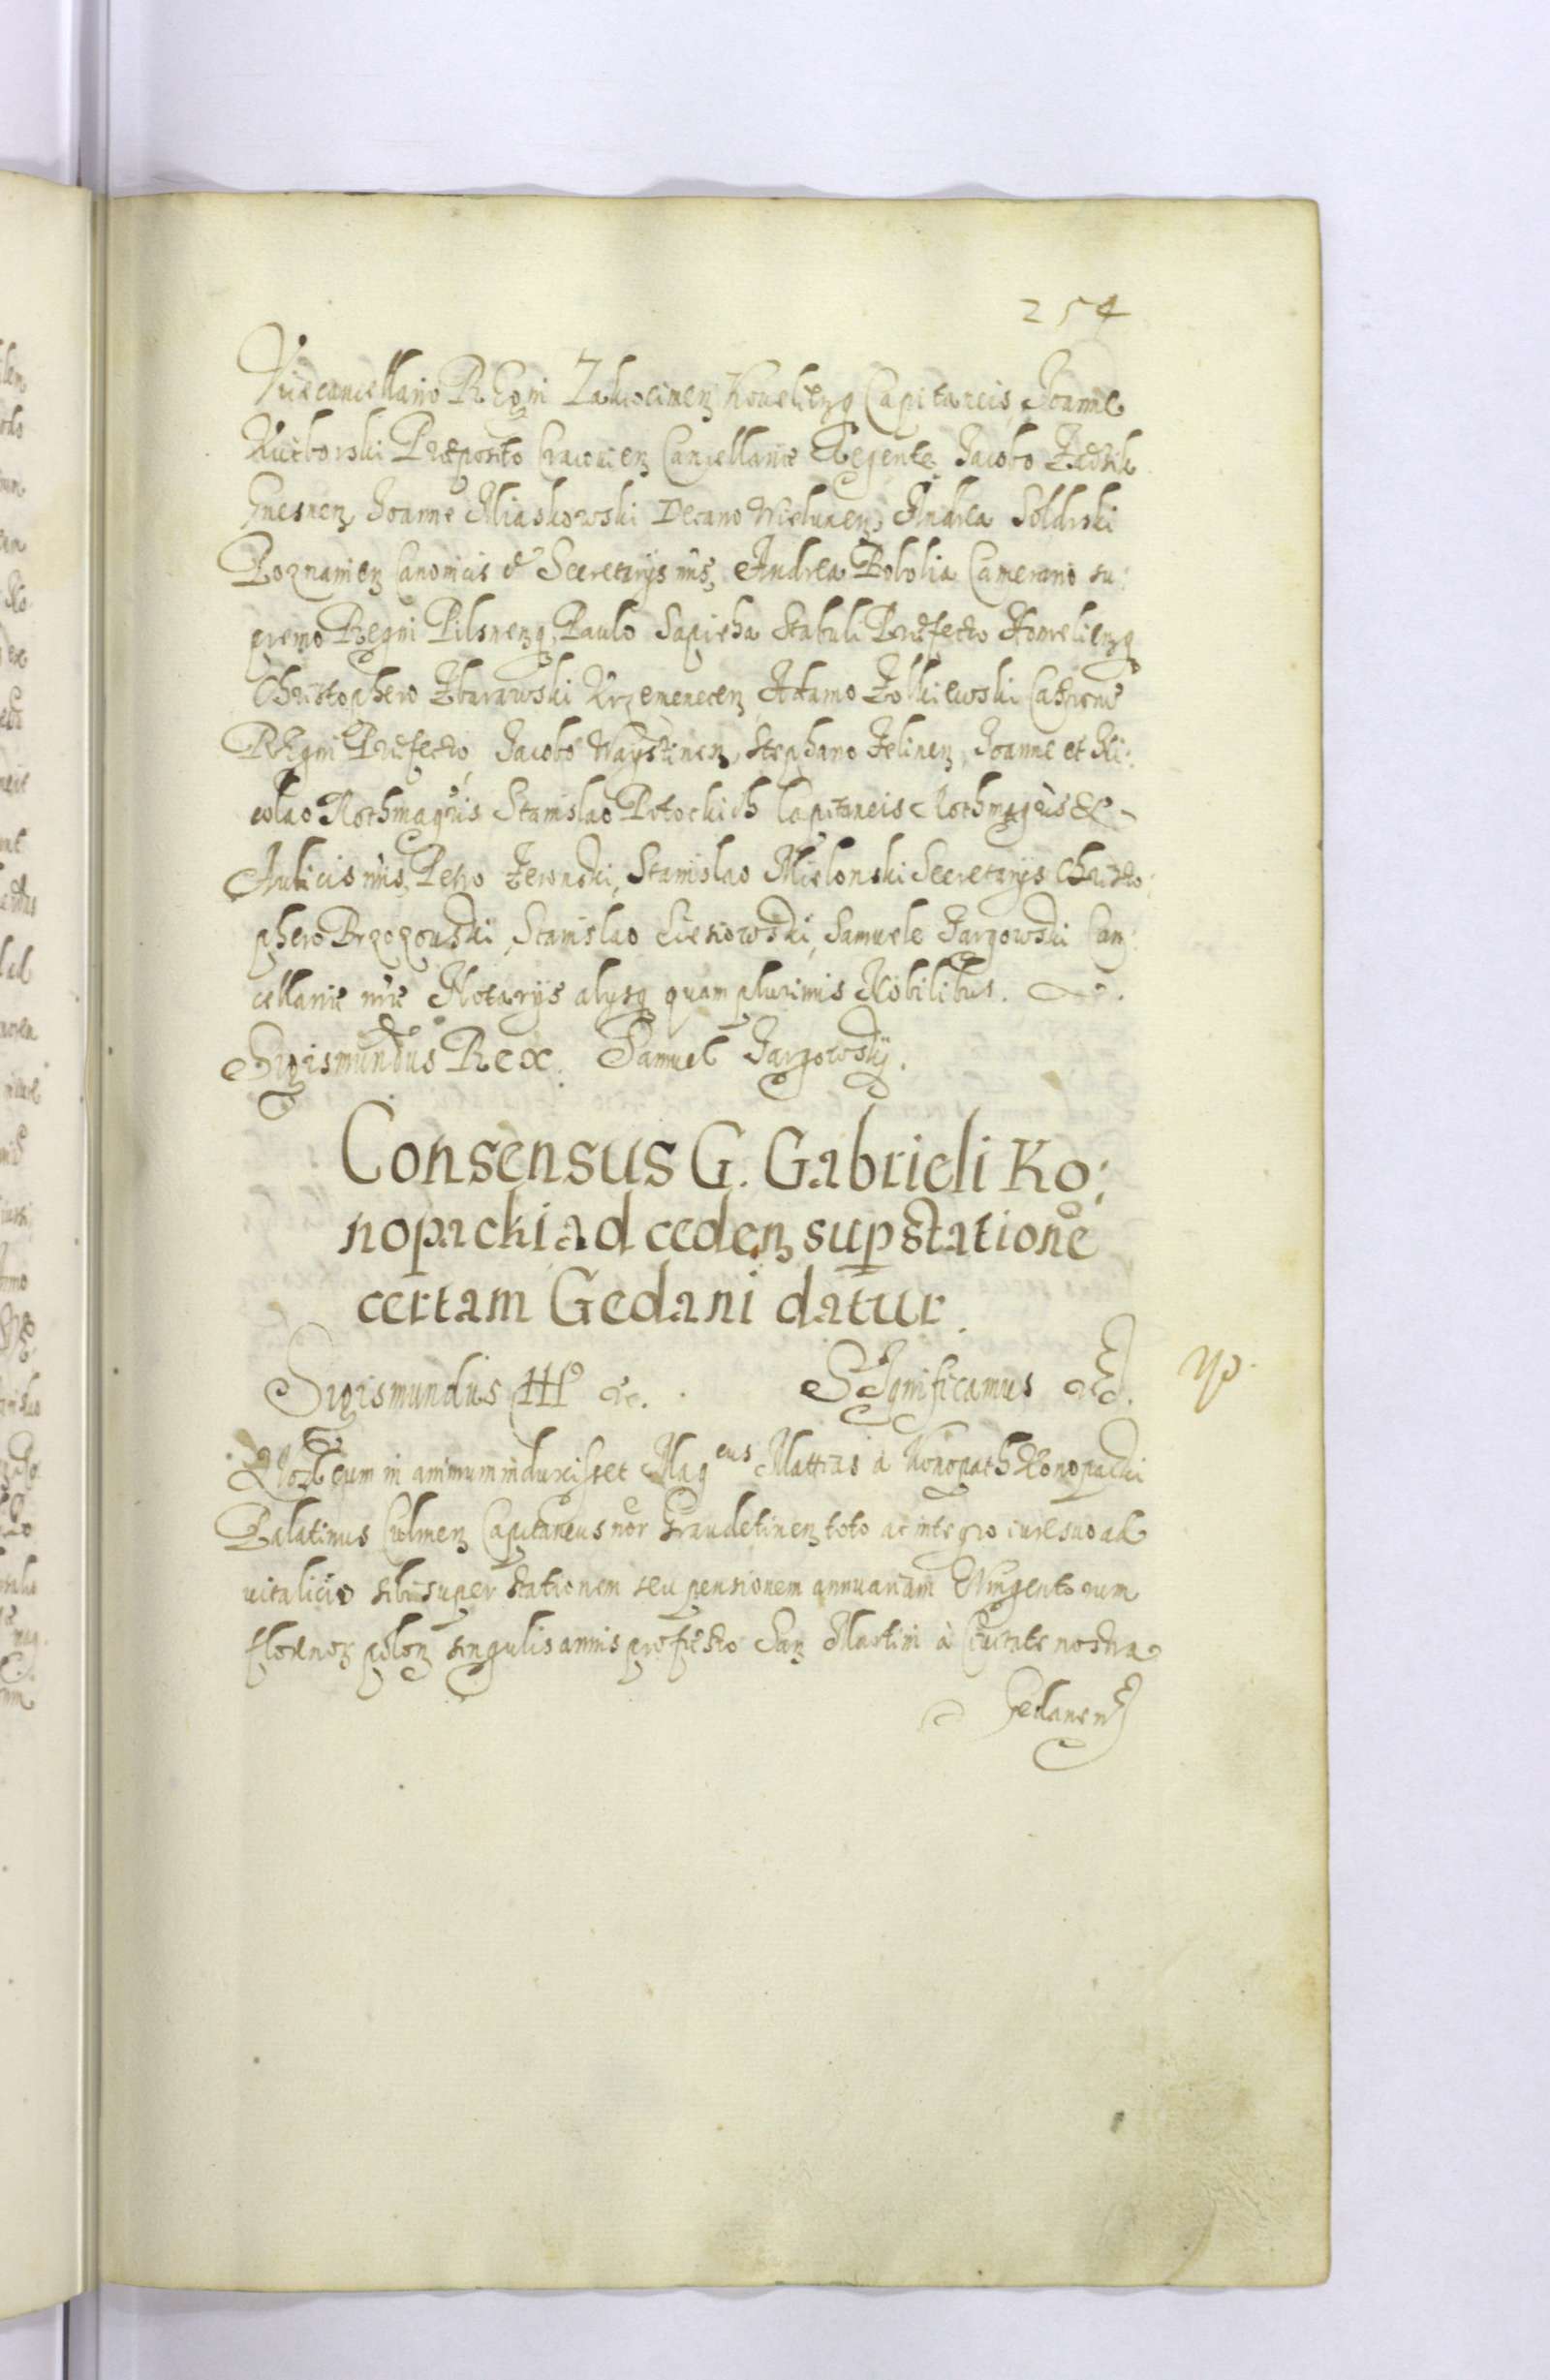 254
Vicecancellario REgni Zakrocimen Kovelienq Capitaneis, Joanne
Kuczborski Præposito Cracovien Cancellariæ Regente, Jacobo Zadzik
Gnesnen, Joanne Miaskowski Decano Wielunen, Andrea Soldrski
Poznanien Canonicis et Secretarijs nris, Andrea Bobolia Camerario su:
premo Regni Pilsnenq, Paulo Sapieha Stabuli Præfecto Homelienq
Christophero Zbarawski Krzemenecen, Adamo Zolkiewski
REgni Præfecto, Jacobo, Stephano Felinen, Joanne et Ni:
colao Rothmagris Stanislao Potockich Capitaneis Rothmagris &
Aulicis nris, Petro Zeronski, Stanislao Mielonski Secretarijs Christo:
phero Brzozowski, Stanislao Liesiowski, Samuele Jargowski Can:
cellariæ nræ Notarijs alijsq quam plurimis Nobilibus.
Sigismundus REX. Samuel Jargowskij.
Consensus G. Gabrieli Ko:
nopacki ad ceden sup statione
certam Gedani datur.
Sigismundus III &c. SIgnificamus &c.
Quod cum in animum induxisset Mageus Mattias a Konopath Konopacki
Palatinus Culmen Capitaneus nr Graudetinen toto ac integro iure suo ad
vitalicio sibi super stationem seu pensionem annuariam Quingentorum
florenor polon singulis annis pro festo San Martini à Civitate nostra
Gedanen